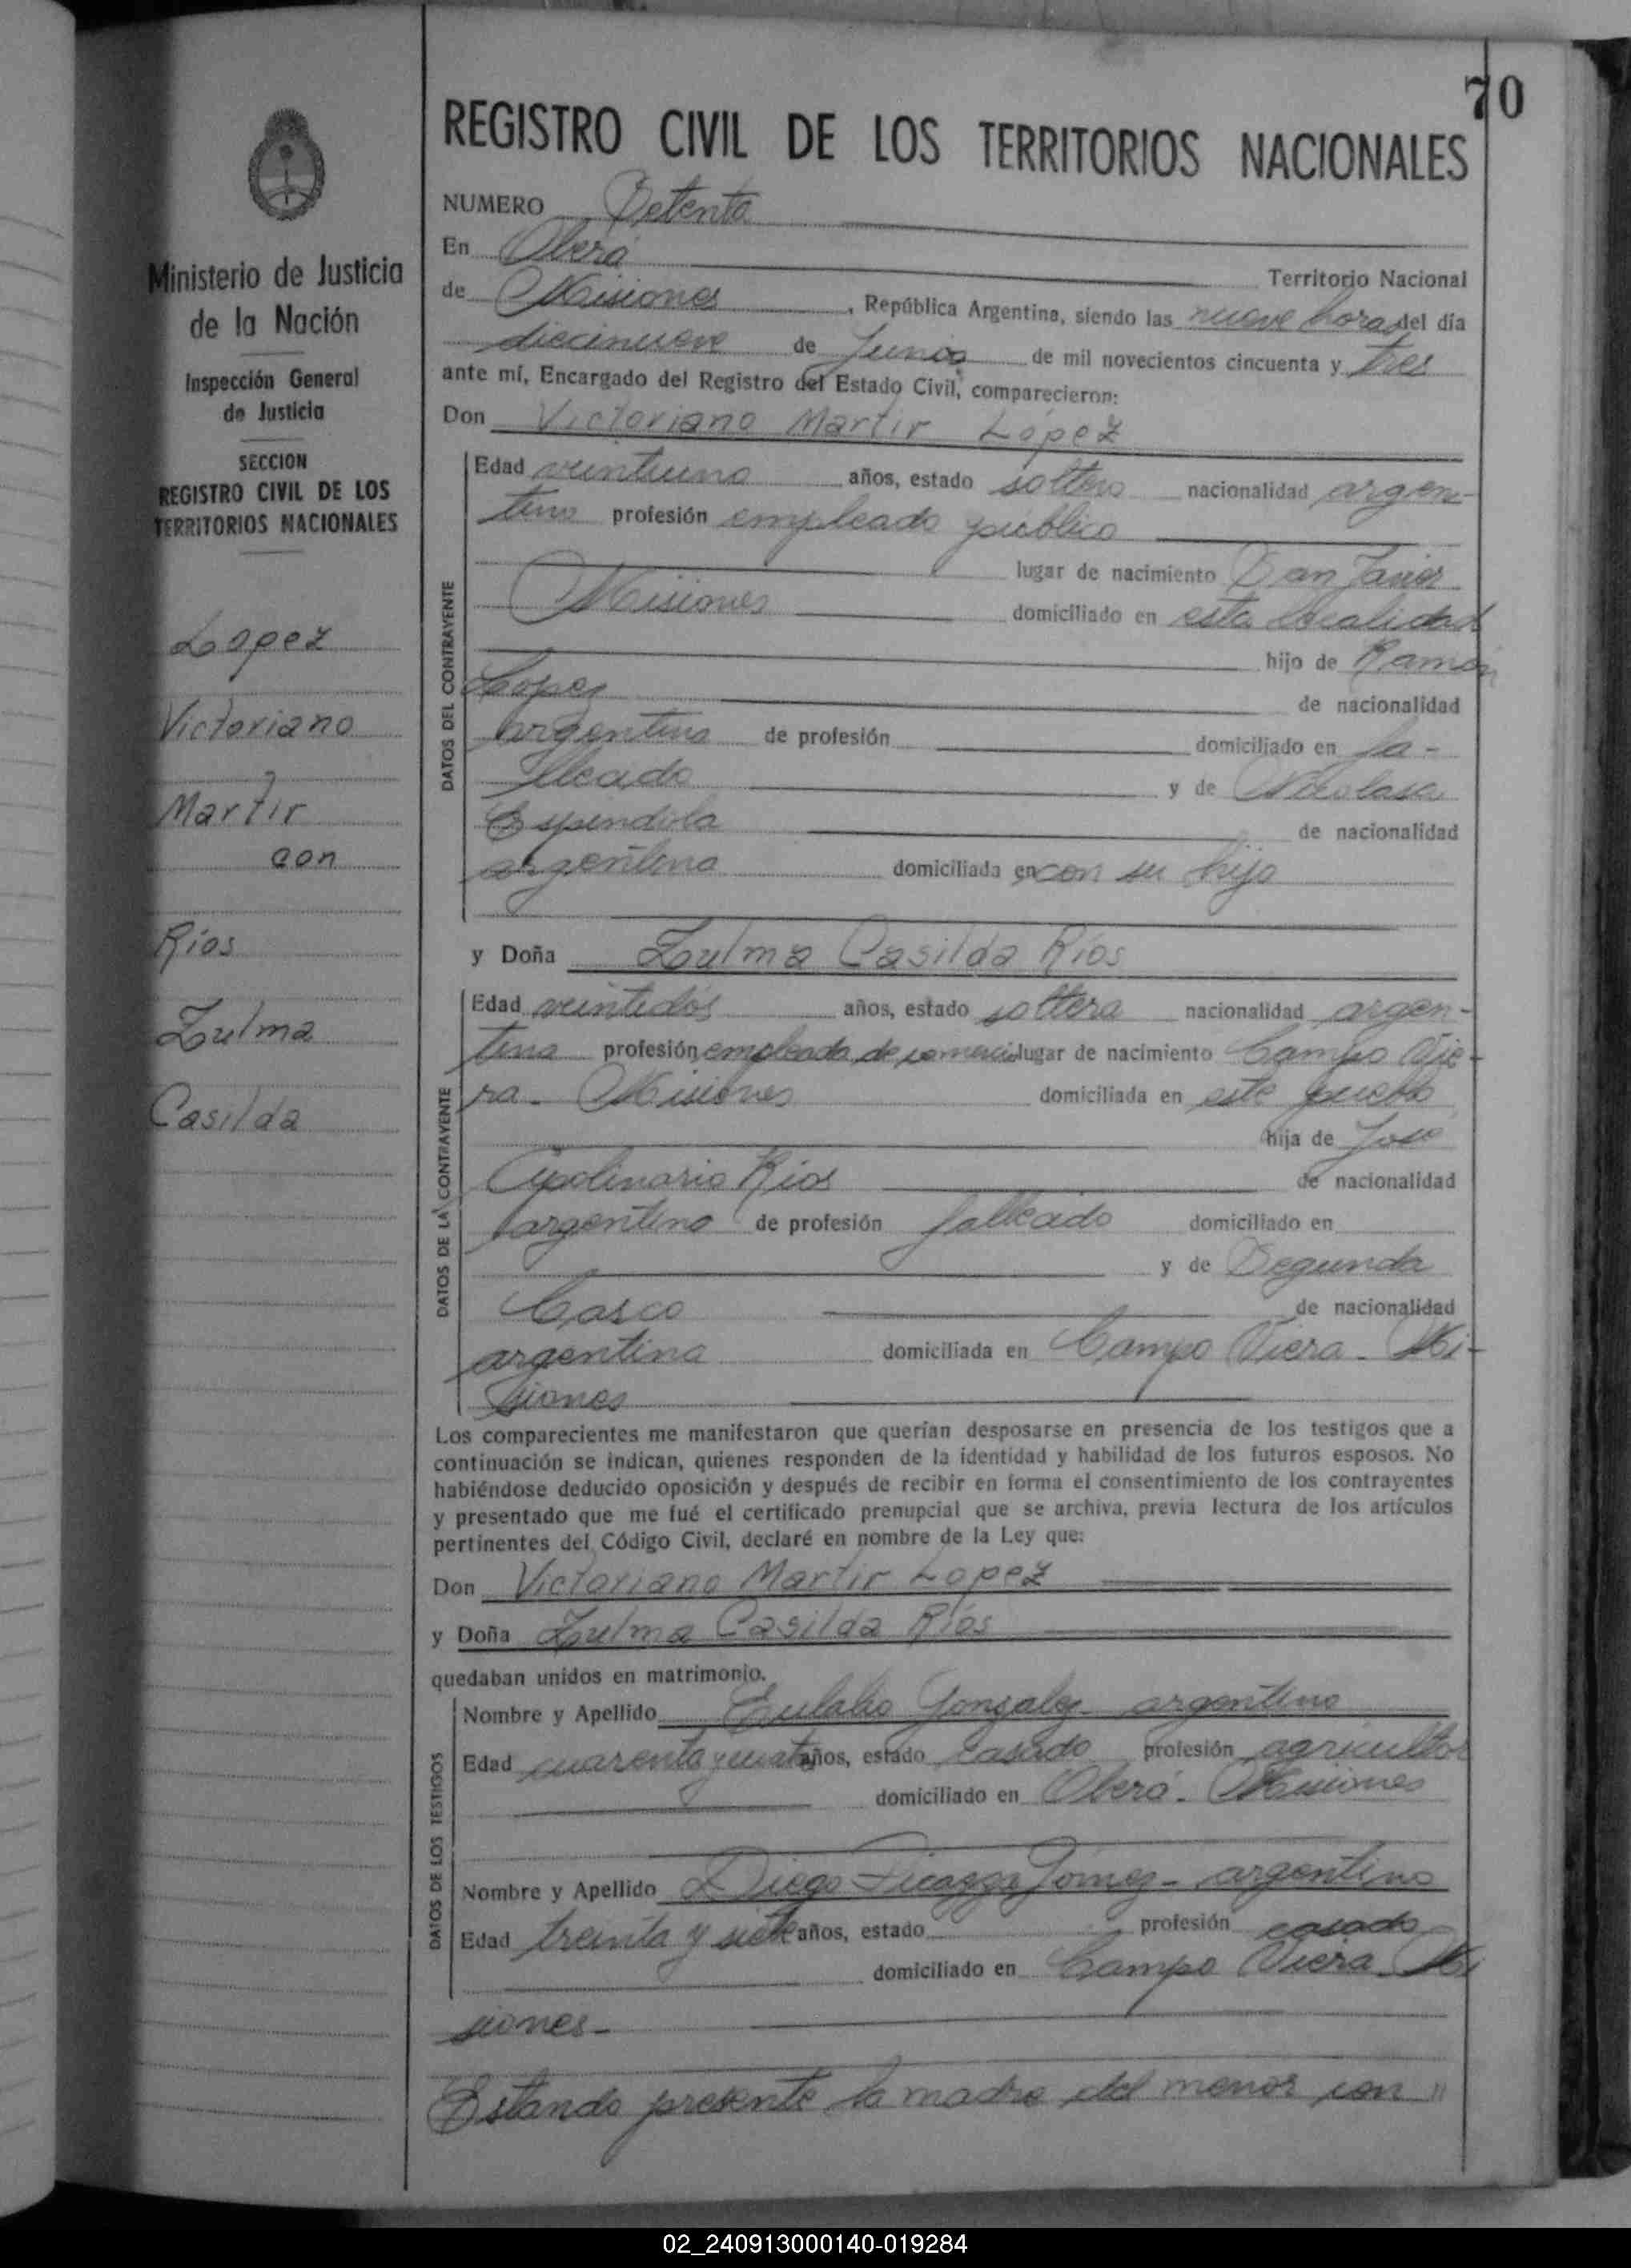 70
REGISTRO CIVIL DE LOS TERRITORIOS NACIONALES
Ministerio de Justicia
de la Nación
Inspección General
de Justicia
SECCION
REGISTRO CIVIL DE LOS
TERRITORIOS NACIONALES
Lopez
Victoriano
Martir
con
Ríos
Zulma
Casilda
NUMERO Setenta
En Oberá Territorio Nacional
de Misiones, República Argentina, siendo las nueve horas del día
diecinueve de Junio de mil novecientos cincuenta y tres
ante mí, Encargado del Registro del Estado Civil, comparecieron:
Don Victoriano Martir López
DATOS DEL CONTRAYENTE
Edad veintiuno años, estado soltero nacionalidad argen-
tino profesión empleado público
lugar de nacimiento San Javier
Misiones domiciliado en esta localidad
hijo de Ramón
López de nacionalidad
argentino de profesión domiciliado en fa-
llecido y de Nicolasa
Espindola de nacionalidad
argentina domiciliada en con su hijo
y Doña Zulma Casilda Ríos
DATOS DE LA CONTRAYENTE
Edad veintidós años, estado soltera nacionalidad argen-
tina profesión empleada de comercio lugar de nacimiento Campo Vie-
ra - Misiones domiciliada en este pueblo
hija de José
Apolinario Ríos de nacionalidad
argentino de profesión fallecido domiciliado en
y de Segunda
Casco de nacionalidad
argentina domiciliada en Campo Viera - Mi-
siones
Los comparecientes me manifestaron que querían desposarse en presencia de los testigos que a
continuación se indican, quienes responden de la identidad y habilidad de los futuros esposos. No
habiéndose deducido oposición y después de recibir en forma el consentimiento de los contrayentes
y presentado que me fué el certificado prenupcial que se archiva, previa lectura de los artículos
pertinentes del Código Civil, declaré en nombre de la Ley que:
Don Victoriano Martir Lopez
y Doña Zulma Casilda Ríos
quedaban unidos en matrimonio.
DATOS DE LOS TESTIGOS
Nombre y Apellido Eulalio Gonzalez - argentino
Edad cuarenta y años, estado casado profesión agricultor
domiciliado en Oberá - Misiones
Nombre y Apellido Diego Gómez - argentino
Edad treinta y siete años, estado profesión casado
domiciliado en Campo Viera - Mi
siones -
Estando presente la madre del menor con "
02_240913000140-019284